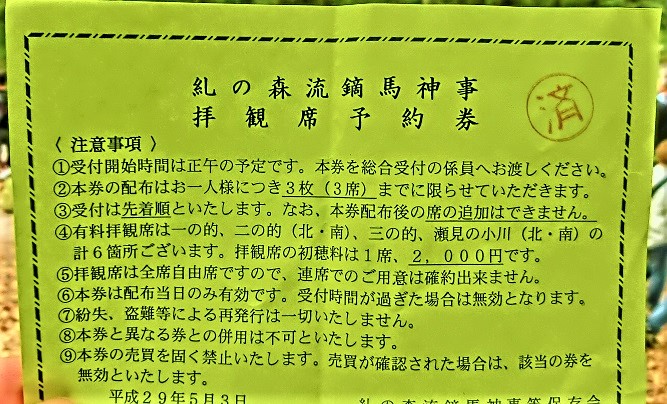 糺の森流鏑馬神事
拝観席予約券
済
〈 注意事項 〉
①受付開始時間は正午の予定です。本券を総合受付の係員へお渡しください。
②本券の配布はお一人様につき3枚(3席)までに限らせていただきます。
③受付は先着順といたします。なお、本券配布後の席の追加はできません。
④有料拝観席は一の的、二の的(北・南)、三の的、瀬見の小川(北・南)の
計6箇所ございます。拝観席の初穂料は1席、2,000円です。
⑤拝観席は全席自由席ですので、連席でのご用意は確約出来ません。
⑥本券は配布当日のみ有効です。受付時間が過ぎた場合は無効となります。
⑦紛失、盗難等による再発行は一切いたしません。
⑧本券と異なる券との併用は不可といたします。
⑨本券の売買を固く禁止いたします。売買が確認された場合は、該当の券を
無効といたします。
平成29年5月3日
糺の森流鏑馬神事等保存会